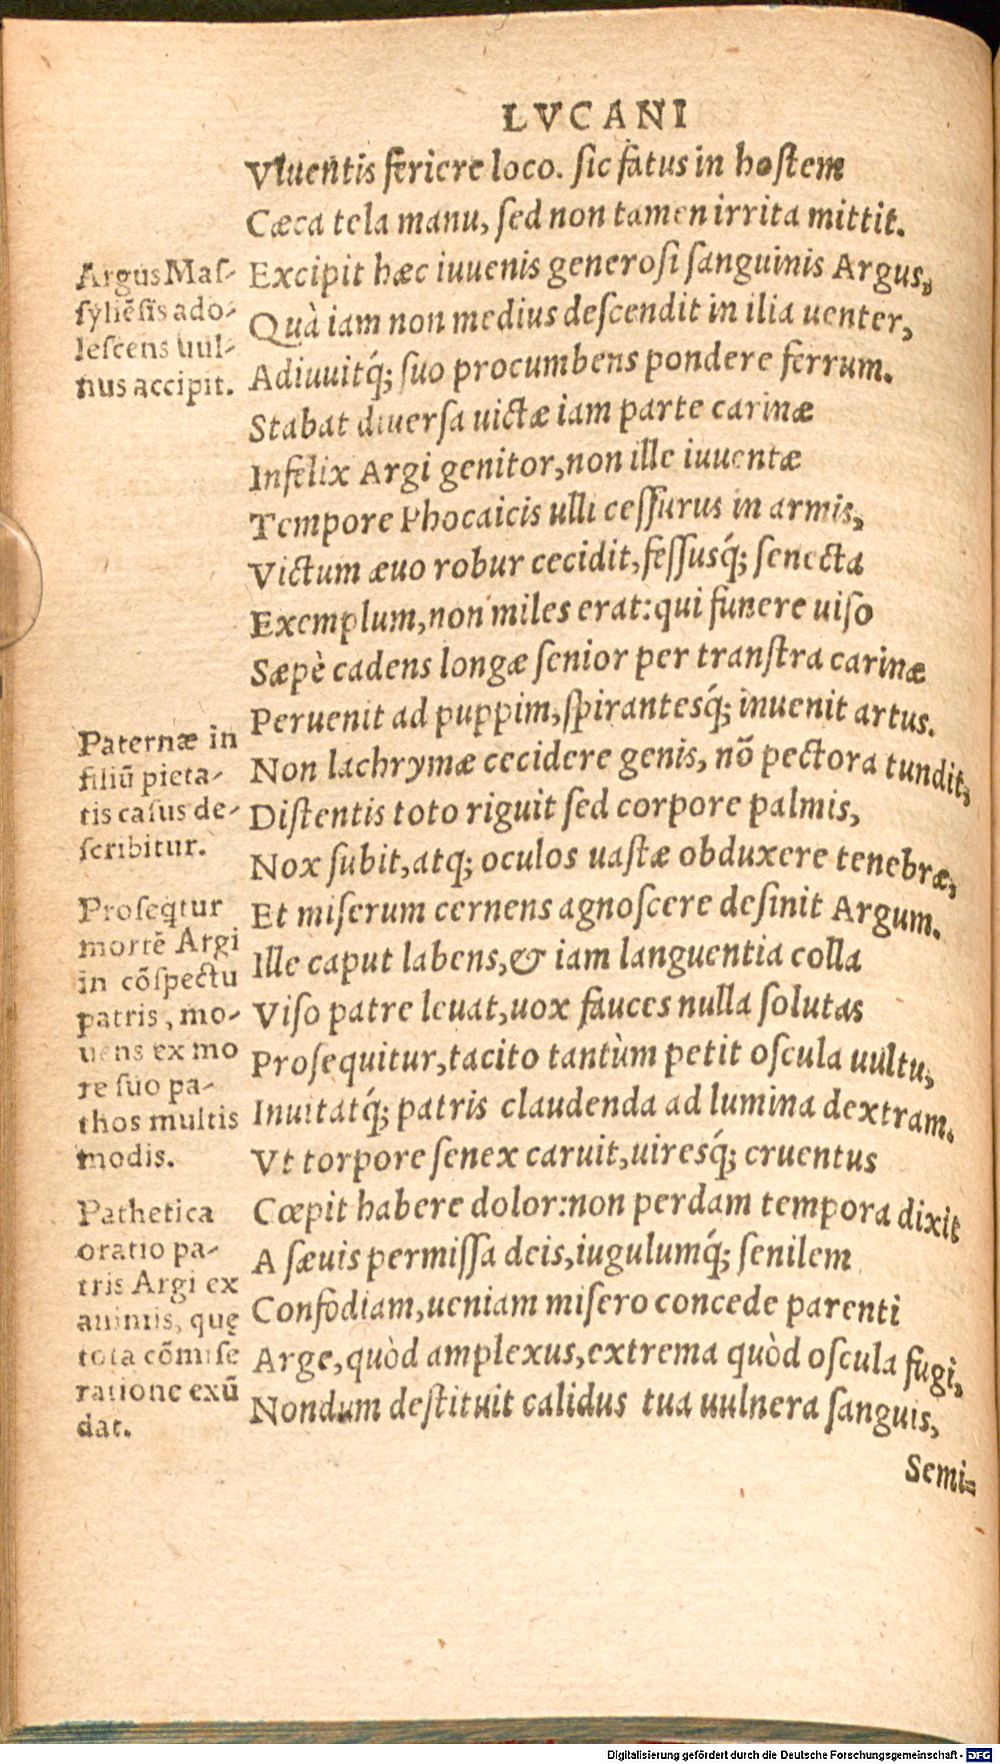 LVCANI
Viuentis feriere loco. sic fatus in hostem
Cæca tela manu, sed non tamen irrita mittit.
Argus Mas-
syliēsis ado-
lescens uul-
nus accipit.
Excipit hæc iuuenis generosi sanguinis Argus,
Quà iam non medius descendit in ilia uenter,
Adiuuitq́; suo procumbens pondere ferrum.
Stabat diuersa uictæ iam parte carinæ
Infelix Argi genitor, non ille iuuentæ
Tempore Phocaicis ulli cessurus in armis,
Victum æuo robur cecidit, fessusq́; senecta
Exemplum, non miles erat: qui funere uiso
Sæpè cadens longæ senior per transtra carinæ
Peruenit ad puppim, spirantesq́; inuenit artus.
Paternæ in
filiū pieta-
tis casus de-
scribitur.
Non lachrymæ cecidere genis, nō pectora tundit,
Distentis toto riguit sed corpore palmis,
Nox subit, atq; oculos uastæ obduxere tenebræ,
Prosequtur
mortē Argi
in cōspectu
patris, mo-
uens ex mo
re suo pa-
thos multis
modis.
Et miserum cernens agnoscere desinit Argum.
Ille caput labens, & iam languentia colla
Viso patre leuat, uox fauces nulla solutas
Prosequitur, tacito tantùm petit oscula uultu,
Inuitatq́; patris claudenda ad lumina dextram.
Vt torpore senex caruit, uiresq́; cruentus
Pathetica
oratio pa-
tris Argi ex
animis, quę
tota cōmise
ratione exū
dat.
Cœpit habere dolor: non perdam tempora dixit
A sæuis permissa deis, iugulumq́; senilem
Confodiam, ueniam misero concede parenti
Arge, quòd amplexus, extrema quòd oscula fugi,
Nondum destituit calidus tua uulnera sanguis,
Semi-
Digitalisierung gefördert durch die Deutsche Forschungsgemeinschaft - DFG